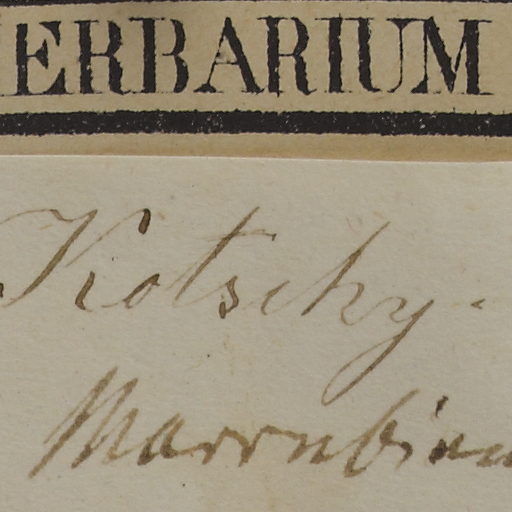 ERBARIUM
Kotschy.
Marrubium